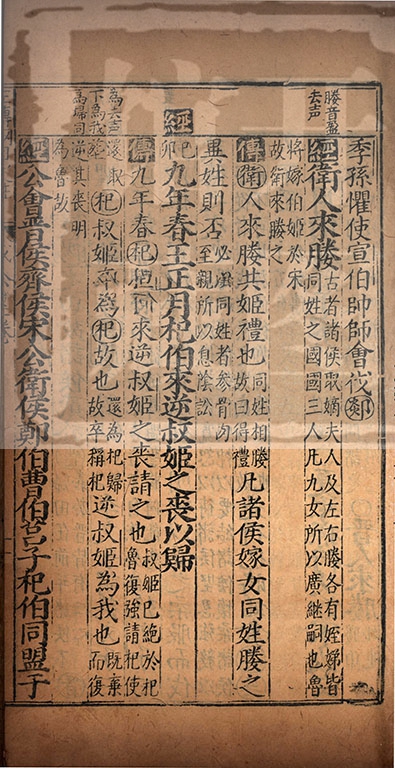 季孫懼使宣伯帥師會伐郯
媵音盈
去声
經衛人來媵
古者諸侯取嫡夫人及左右媵各有姪娣皆
同姓之國國三人凡九女所以廣繼嗣也魯
將嫁伯姬於宋
故衛來媵之
傳衛人來媵共姬禮也
同姓相媵
故曰得禮
凡諸侯嫁女同姓媵之
異姓則否
必以同姓者參骨肉
至親所以息陰訟
經
己卯
九年春王正月杞伯來逆叔姬之喪以歸
傳九年春杞桓公來逆叔姬之喪請之也
叔姬已絕於杞
魯復強請杞使
為去声
下為我
為歸同
還取
葬
杞叔姬卒為杞故也
還為杞歸
故卒稱杞
逆叔姬為我也
既棄
而復
逆其喪明
為魯故
經公會晉侯齊侯宋公衛侯鄭伯曹伯莒子杞伯同盟于